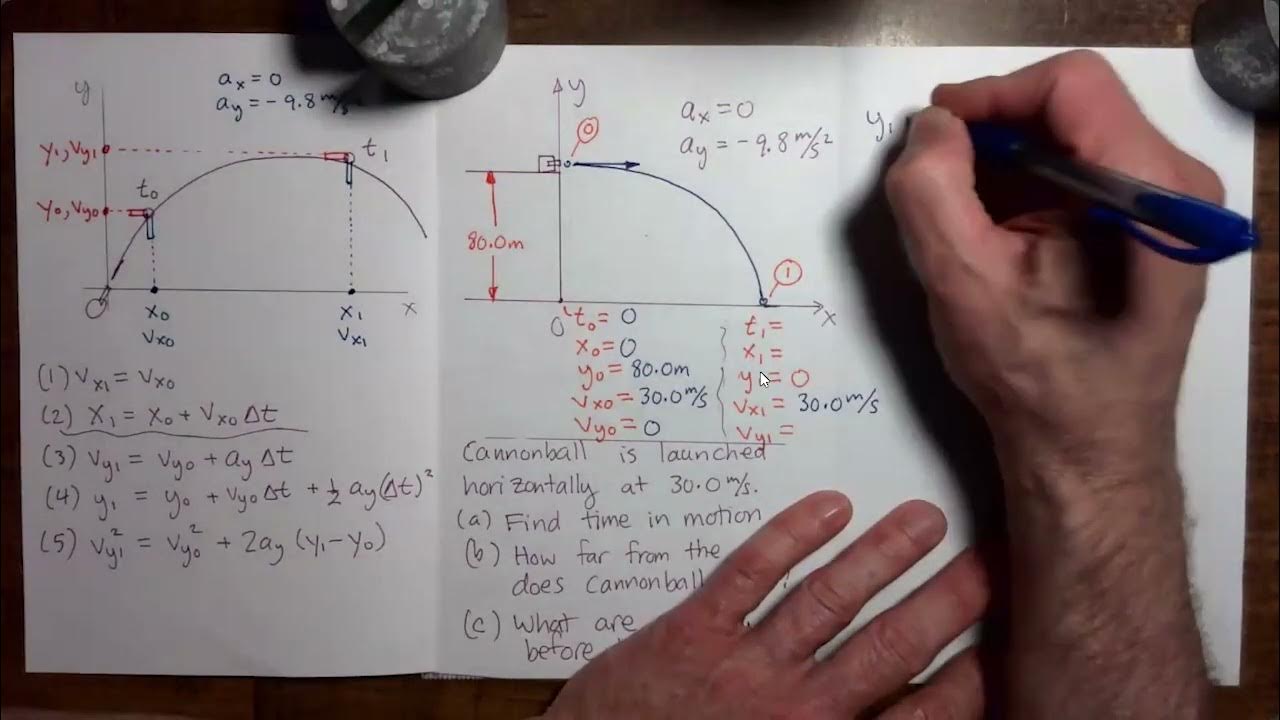 y
aₓ = 0
a_y = -9.8 m/s
y₁, v_y₁
t₁
t₀
y₀, v_y₀
x₀
vₓ₀
x₁
vₓ₁
x
(1) vₓ₁ = vₓ₀
(2) x₁ = x₀ + vₓ₀ Δt
(3) v_y₁ = v_y₀ + a_y Δt
(4) y₁ = y₀ + v_y₀ Δt + ½ a_y (Δt)²
(5) v_y₁² = v_y₀² + 2a_y (y₁ - y₀)
y
0
aₓ = 0
a_y = -9.8 m/s²
80.0m
1
0
x
t₀ = 0
x₀ = 0
y₀ = 80.0m
vₓ₀ = 30.0 m/s
v_y₀ = 0
t₁ =
x₁ =
y = 0
vₓ₁ = 30.0 m/s
v_y₁ =
Cannonball is launched
horizontally at 30.0 m/s.
(a) Find time in motion
(b) How far from the
does cannonball
(c) What are
before
y₁